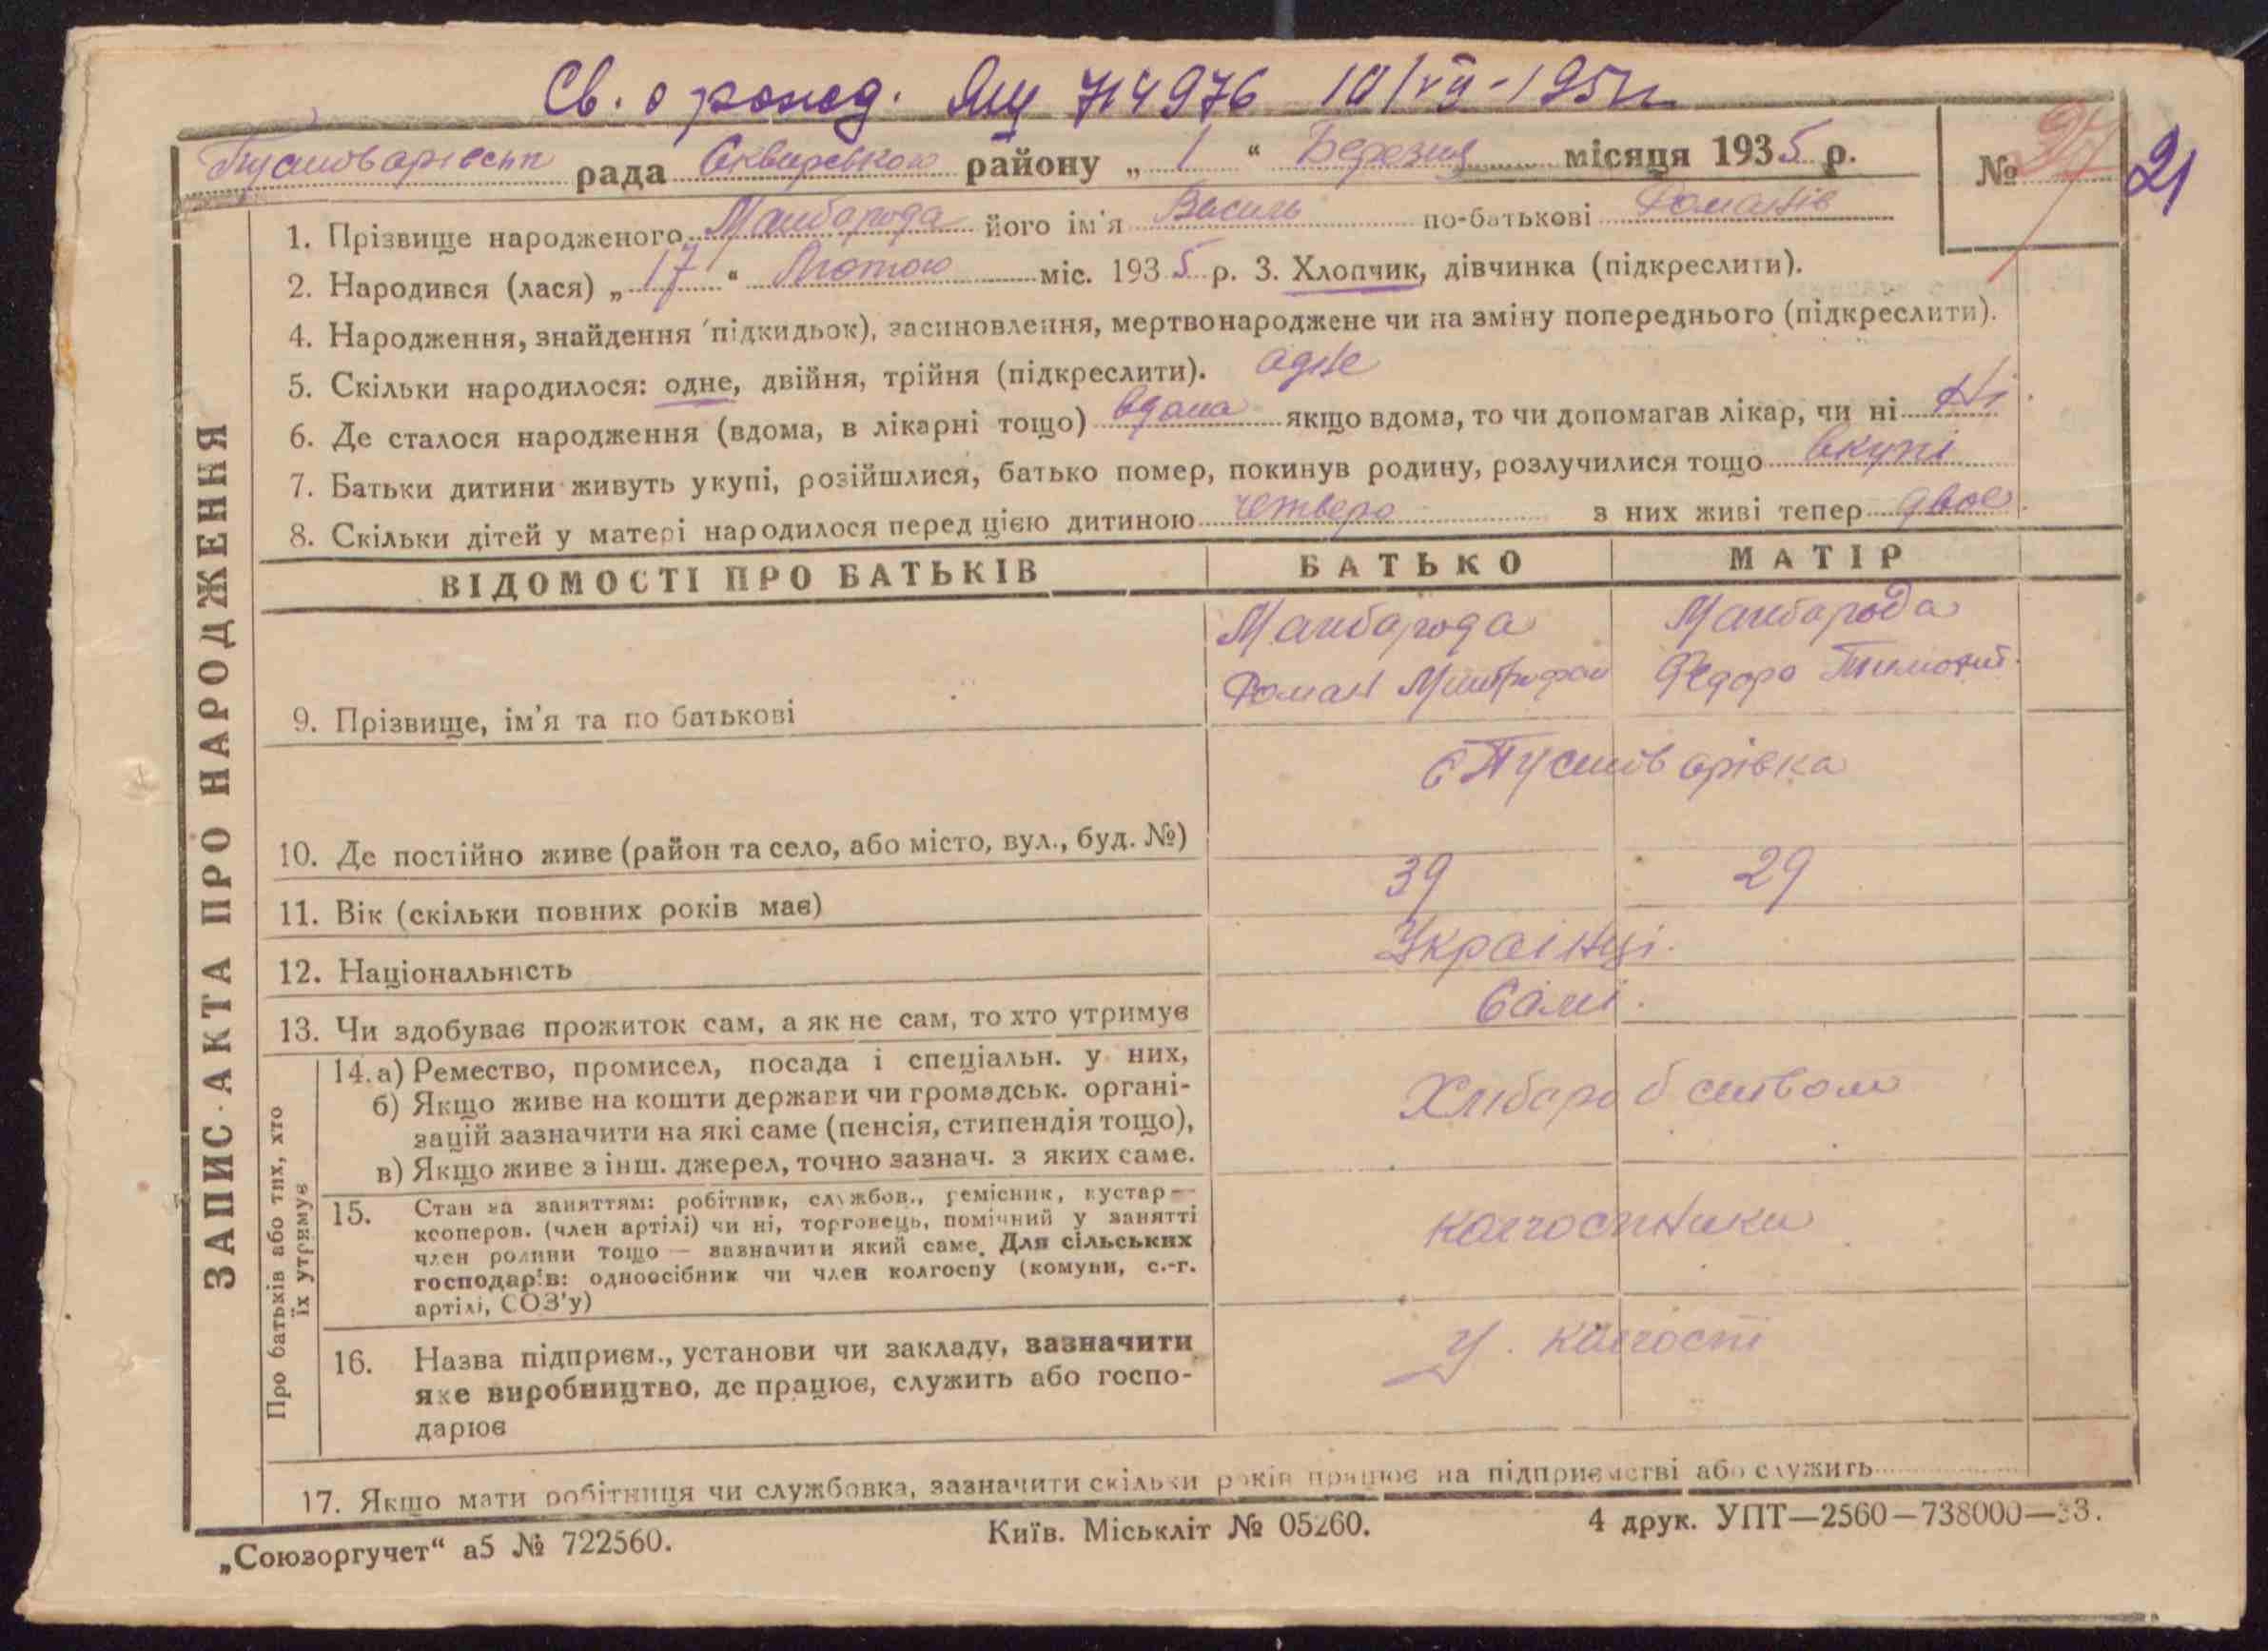 Св. о рожд. ЯЩ 714976 10/VII-195
Пустоварівськ рада Сквирського району „ 1 “ Березня місяця 1935 р. № 21
1. Прізвище народженого Маиборода його ім'я Василь по-батькові Романів
2. Народився (лася) „ 17 “ Лютого міс. 1935 р. 3. Хлопчик, дівчинка (підкреслити).
4. Народження, знайдення (підкидьок), засиновлення, мертвонароджене чи на зміну попереднього (підкреслити).
5. Скільки народилося: одне, двійня, трійня (підкреслити). одне
6. Де сталося народження (вдома, в лікарні тощо) вдома якщо вдома, то чи допомагав лікар, чи ні Ні
7. Батьки дитини живуть укупі, розійшлися, батько помер, покинув родину, розлучилися тощо вкупі
8. Скільки дітей у матері народилося перед цією дитиною четверо з них живі тепер двоє
ЗАПИС АКТА ПРО НАРОДЖЕННЯ
ВІДОМОСТІ ПРО БАТЬКІВ БАТЬКО МАТІР
Маиборода Маиборода
Роман Митрофан Федора Тимофіїв.
9. Прізвище, ім'я та по батькові
с Пустоварівка
10. Де постійно живе (район та село, або місто, вул., буд. №)
11. Вік (скільки повних років має) 39 29
12. Національність Українці.
13. Чи здобуває прожиток сам, а як не сам, то хто утримує Самі.
Про батьків або тих, хто
їх утримує
14. а) Ремество, промисел, посада і спеціальн. у них,
б) Якщо живе на кошти держави чи громадськ. органі-
зацій зазначити на які саме (пенсія, стипендія тощо),
в) Якщо живе з інш. джерел, точно зазнач. з яких саме.
Хліборобством
15. Стан за заняттям: робітник, службов., ремісник, кустар —
кооперов. (член артілі) чи ні, торговець, помічний у занятті
член родини тощо — зазначити який саме. Для сільських
господарів: одноосібник чи член колгоспу (комуни, с.-г.
артілі, СОЗ'у)
колгоспники
16. Назва підприєм., установи чи закладу, зазначити
яке виробництво, де працює, служить або госпо-
дарює
у. колгоспі
17. Якщо мати робітниця чи службовка, зазначити скільки років працює на підприємстві або служить
„Союзоргучет“ а5 № 722560. Київ. Міськліт № 05260. 4 друк. УПТ—2560—738000—33.